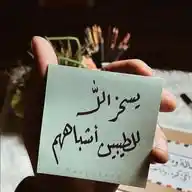 يسخر الله
للطيبين أشباههم